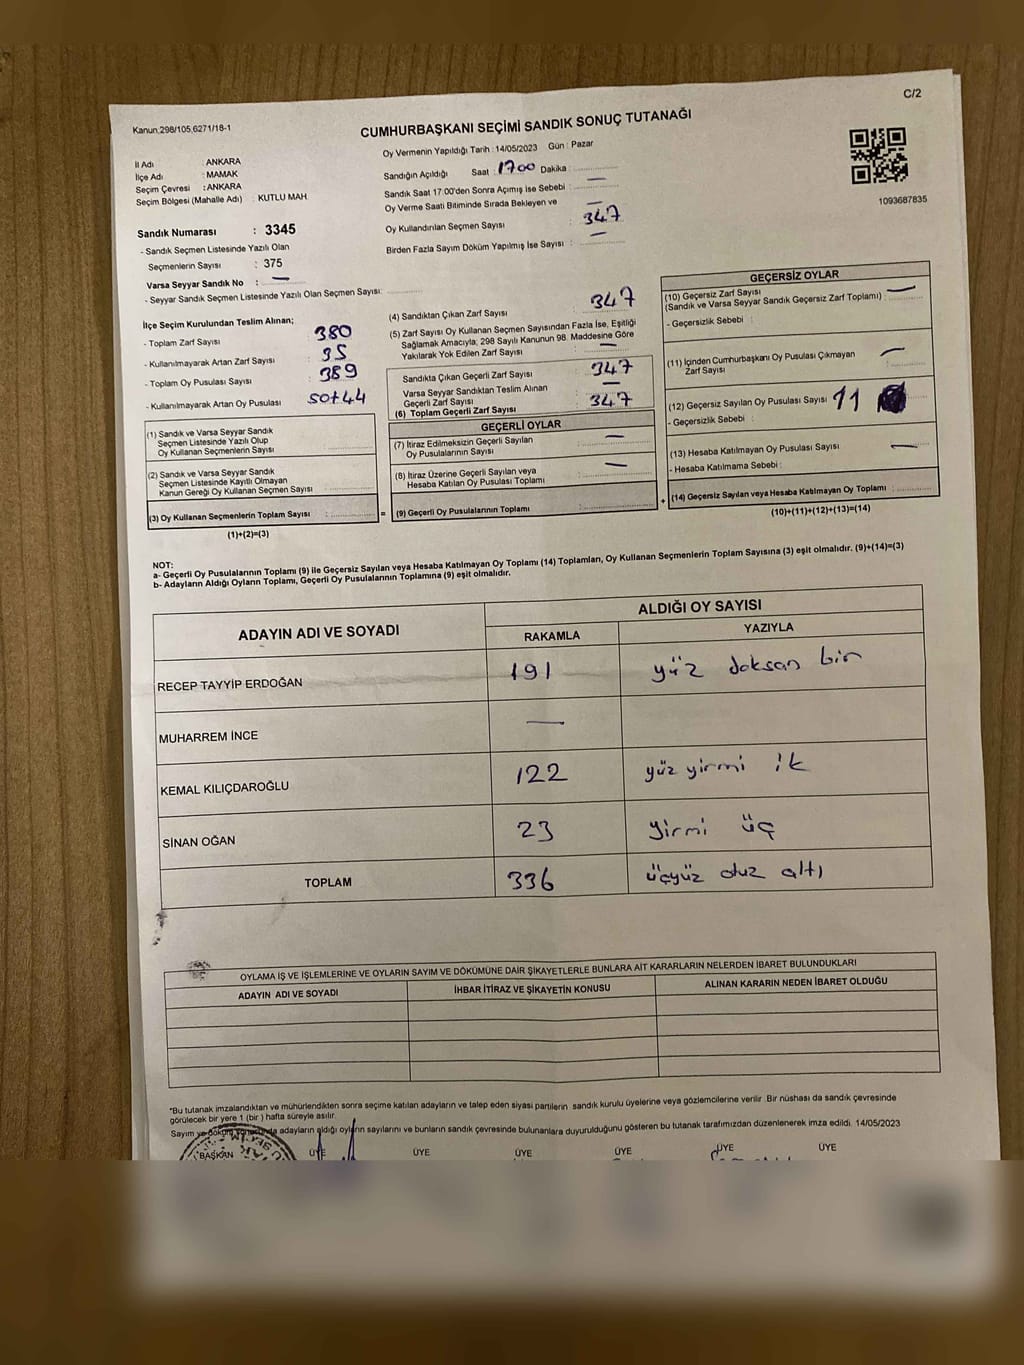 C/2
Kanun.298/105,6271/18-1
CUMHURBAŞKANI SEÇİMİ SANDIK SONUÇ TUTANAĞI
İl Adı : ANKARA
İlçe Adı : MAMAK
Seçim Çevresi : ANKARA
Seçim Bölgesi (Mahalle Adı) : KUTLU MAH.
Sandık Numarası : 3345
- Sandık Seçmen Listesinde Yazılı Olan
Seçmenlerin Sayısı : 375
Varsa Seyyar Sandık No : —
- Seyyar Sandık Seçmen Listesinde Yazılı Olan Seçmen Sayısı:
Oy Vermenin Yapıldığı Tarih : 14/05/2023 Gün : Pazar
Sandığın Açıldığı Saat : 1700 Dakika :
Sandık Saat 17:00'den Sonra Açımış İse Sebebi : —
Oy Verme Saati Bitiminde Sırada Bekleyen ve —
Oy Kullandırılan Seçmen Sayısı : 347
Birden Fazla Sayım Döküm Yapılmış İse Sayısı : —
1093687835
İlçe Seçim Kurulundan Teslim Alınan;
- Toplam Zarf Sayısı : 380
- Kullanılmayarak Artan Zarf Sayısı : 35
- Toplam Oy Pusulası Sayısı : 389
- Kullanılmayarak Artan Oy Pusulası : 50+44
(1) Sandık ve Varsa Seyyar Sandık
Seçmen Listesinde Yazılı Olup
Oy Kullanan Seçmenlerin Sayısı :
(2) Sandık ve Varsa Seyyar Sandık
Seçmen Listesinde Kayıtlı Olmayan
Kanun Gereği Oy Kullanan Seçmen Sayısı :
(3) Oy Kullanan Seçmenlerin Toplam Sayısı : =
(1)+(2)=(3)
(4) Sandıktan Çıkan Zarf Sayısı : 347
(5) Zarf Sayısı Oy Kullanan Seçmen Sayısından Fazla İse, Eşitliği
Sağlamak Amacıyla; 298 Sayılı Kanunun 98. Maddesine Göre
Yakılarak Yok Edilen Zarf Sayısı : —
Sandıkta Çıkan Geçerli Zarf Sayısı : 347
Varsa Seyyar Sandıktan Teslim Alınan
Geçerli Zarf Sayısı : —
(6) Toplam Geçerli Zarf Sayısı : 347
GEÇERLİ OYLAR
(7) İtiraz Edilmeksizin Geçerli Sayılan
Oy Pusulalarının Sayısı : —
(8) İtiraz Üzerine Geçerli Sayılan veya
Hesaba Katılan Oy Pusulası Toplamı : —
(9) Geçerli Oy Pusulalarının Toplamı : +
GEÇERSİZ OYLAR
(10) Geçersiz Zarf Sayısı —
(Sandık ve Varsa Seyyar Sandık Geçersiz Zarf Toplamı) :
- Geçersizlik Sebebi :
(11) İçinden Cumhurbaşkanı Oy Pusulası Çıkmayan
Zarf Sayısı : —
(12) Geçersiz Sayılan Oy Pusulası Sayısı : 11
- Geçersizlik Sebebi :
(13) Hesaba Katılmayan Oy Pusulası Sayısı : —
- Hesaba Katılmama Sebebi :
(14) Geçersiz Sayılan veya Hesaba Katılmayan Oy Toplamı :
(10)+(11)+(12)+(13)=(14)
NOT:
a- Geçerli Oy Pusulalarının Toplamı (9) ile Geçersiz Sayılan veya Hesaba Katılmayan Oy Toplamı (14) Toplamları, Oy Kullanan Seçmenlerin Toplam Sayısına (3) eşit olmalıdır. (9)+(14)=(3)
b- Adayların Aldığı Oyların Toplamı, Geçerli Oy Pusulalarının Toplamına (9) eşit olmalıdır.
ADAYIN ADI VE SOYADI ALDIĞI OY SAYISI
RAKAMLA YAZIYLA
RECEP TAYYİP ERDOĞAN 191 yüz doksan bir
MUHARREM İNCE —
KEMAL KILIÇDAROĞLU 122 yüz yirmi ik
SİNAN OĞAN 23 yirmi üç
TOPLAM 336 üçyüz otuz altı
OYLAMA İŞ VE İŞLEMLERİNE VE OYLARIN SAYIM VE DÖKÜMÜNE DAİR ŞİKAYETLERLE BUNLARA AİT KARARLARIN NELERDEN İBARET BULUNDUKLARI
ADAYIN ADI VE SOYADI İHBAR İTİRAZ VE ŞİKAYETİN KONUSU ALINAN KARARIN NEDEN İBARET OLDUĞU
*Bu tutanak imzalandıktan ve mühürlendikten sonra seçime katılan adayların ve talep eden siyasi partilerin sandık kurulu üyelerine veya gözlemcilerine verilir. Bir nüshası da sandık çevresinde
görülecek bir yere 1 (bir) hafta süreyle asılır.
Sayım ve döküm sonunda adayların aldığı oyların sayılarını ve bunların sandık çevresinde bulunanlara duyurulduğunu gösteren bu tutanak tarafımızdan düzenlenerek imza edildi. 14/05/2023
BAŞKAN ÜYE ÜYE ÜYE ÜYE ÜYE ÜYE